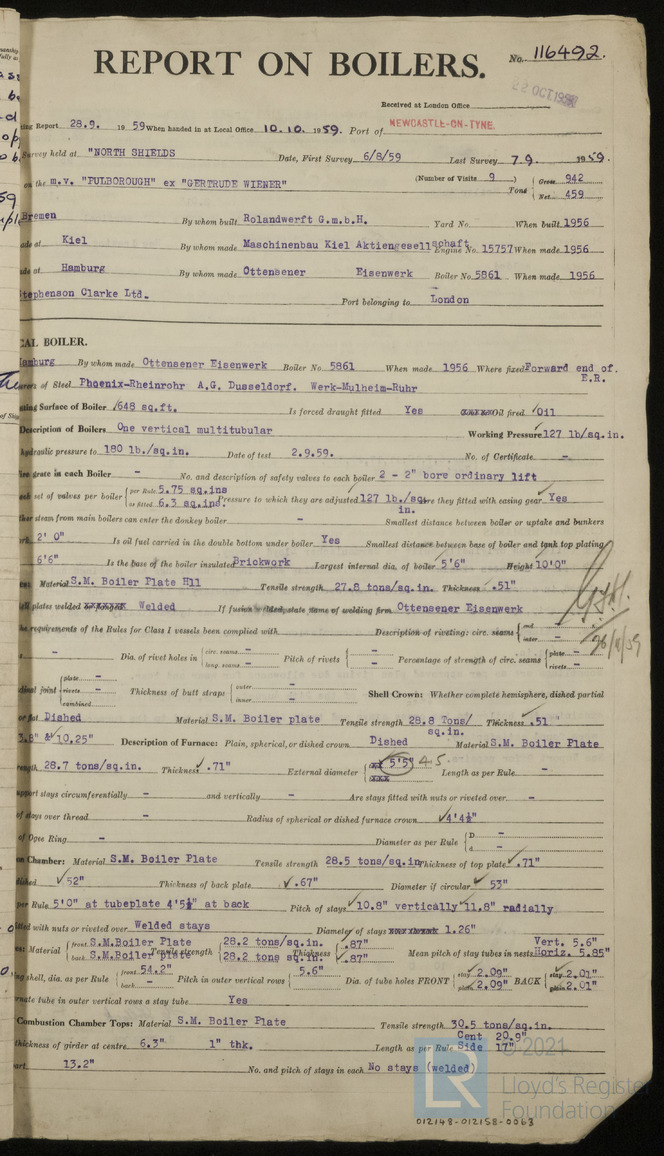 REPORT ON BOILERS.
No. 116492.
22 OCT 195
Received at London Office
ing Report 28.9. 19 59 When handed in at Local Office 10.10. 1959. Port of NEWCASTLE-ON-TYNE.
Survey held at "NORTH SHIELDS Date, First Survey 6/8/59 Last Survey 7.9. 1959.
on the m.v. "FULBOROUGH" ex "GERTRUDE WIENER" (Number of Visits 9 ) Tons { Gross 942
Net 459
Bremen By whom built Rolandwerft G.m.b.H. Yard No. When built 1956
ade at Kiel By whom made Maschinenbau Kiel Aktiengesellschaft Engine No. 15757 When made 1956
ade at Hamburg By whom made Ottensener Eisenwerk Boiler No. 5861 When made 1956
Stephenson Clarke Ltd. Port belonging to London
CAL BOILER.
Hamburg By whom made Ottensener Eisenwerk Boiler No. 5861 When made 1956 Where fixed Forward end of.
E.R.
urers of Steel Phoenix-Rheinrohr A.G. Dusseldorf. Werk-Mulheim-Ruhr
ating Surface of Boiler 648 sq.ft. Is forced draught fitted Yes Oil fired Oil
Description of Boilers One vertical multitubular Working Pressure 127 lb/sq.in.
hydraulic pressure to 180 lb./sq.in. Date of test 2.9.59. No. of Certificate -
fire grate in each Boiler - No. and description of safety valves to each boiler 2 - 2" bore ordinary lift
each set of valves per boiler { per Rule 5.75 sq.ins
as fitted 6.3 sq.ins. Pressure to which they are adjusted 127 lb./sq. in. are they fitted with easing gear Yes
ther steam from main boilers can enter the donkey boiler - Smallest distance between boiler or uptake and bunkers
2' 0" Is oil fuel carried in the double bottom under boiler Yes Smallest distance between base of boiler and tank top plating
6'6" Is the base of the boiler insulated Brickwork Largest internal dia. of boiler 5'6" Height 10'0"
Material S.M. Boiler Plate H11 Tensile strength 27.8 tons/sq.in. Thickness .51"
ell plates welded Welded If fusion welded, state name of welding firm Ottensener Eisenwerk
the requirements of the Rules for Class I vessels been complied with Description of riveting: circ. seams { end
inter -
- Dia. of rivet holes in { circ. seams -
long. seams - Pitch of rivets { -
- Percentage of strength of circ. seams { plate -
rivets -
dinal joint { plate -
rivets -
combined Thickness of butt straps { outer -
inner - Shell Crown: Whether complete hemisphere, dished partial
or flat Dished Material S.M. Boiler plate Tensile strength 28.8 Tons/ sq.in. Thickness .51"
3.8" & 10.25" Description of Furnace: Plain, spherical, or dished crown Dished Material S.M. Boiler Plate
rength 28.7 tons/sq.in. Thickness .71" External diameter { 5'5" 45 Length as per Rule -
upport stays circumferentially - and vertically - Are stays fitted with nuts or riveted over -
of stays over thread - Radius of spherical or dished furnace crown 4'4½"
of Ogee Ring - Diameter as per Rule { D -
d -
on Chamber: Material S.M. Boiler Plate Tensile strength 28.5 tons/sq.in Thickness of top plate .71"
dished 52" Thickness of back plate .67" Diameter if circular 53"
per Rule 5'0" at tubeplate 4'5½" at back Pitch of stays 10.8" vertically 11.8" radially
itted with nuts or riveted over Welded stays Diameter of stays 1.26"
es: Material { front S.M.Boiler Plate
back S.M.Boiler plate Tensile strength { 28.2 tons/sq.in.
28.2 tons sq.in. Thickness { .87"
.87" Mean pitch of stay tubes in nests Vert. 5.6"
Horiz. 5.85"
ng shell, dia. as per Rule { front 54.2"
back - Pitch in outer vertical rows { 5.6" Dia. of tube holes FRONT { stay 2.09"
plain 2.09" BACK { stay 2.01"
plain 2.01"
rnate tube in outer vertical rows a stay tube Yes
Combustion Chamber Tops: Material S.M. Boiler Plate Tensile strength 30.5 tons/sq.in.
thickness of girder at centre 6.3" 1" thk. Length as per Rule Cent 20.9"
Side 17"
13.2" No. and pitch of stays in each No stays (welded)
26/11/59
LR
© 2021
Lloyd's Register
Foundation
012148-012158-0063